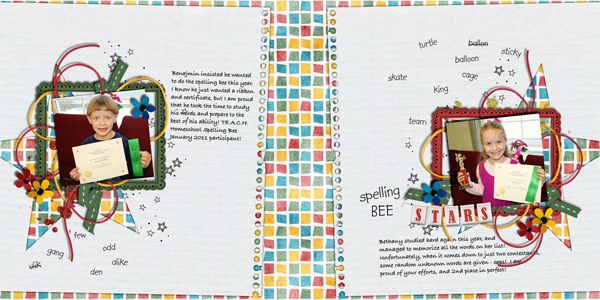 Benajmin insisted he wanted
to do the spelling bee this year.
I know he just wanted a ribbon
and certificate, but I am proud
that he took the time to study
his words and prepare to the
best of his ability! T.E.A.C.H.
Homeschool Spelling Bee
January 2011 participant!
few
odd
gang
alike
den
turtle
ballon
sticky
balloon
skate
cage
King
team
spelling
BEE
STARS
Bethany studied hard again this year, and
managed to memorize all the words on her list!
Unfortunately, when it comes down to just two contestants,
some random unknown words are given - oops! I am
proud of your efforts, and 2nd place is perfect!